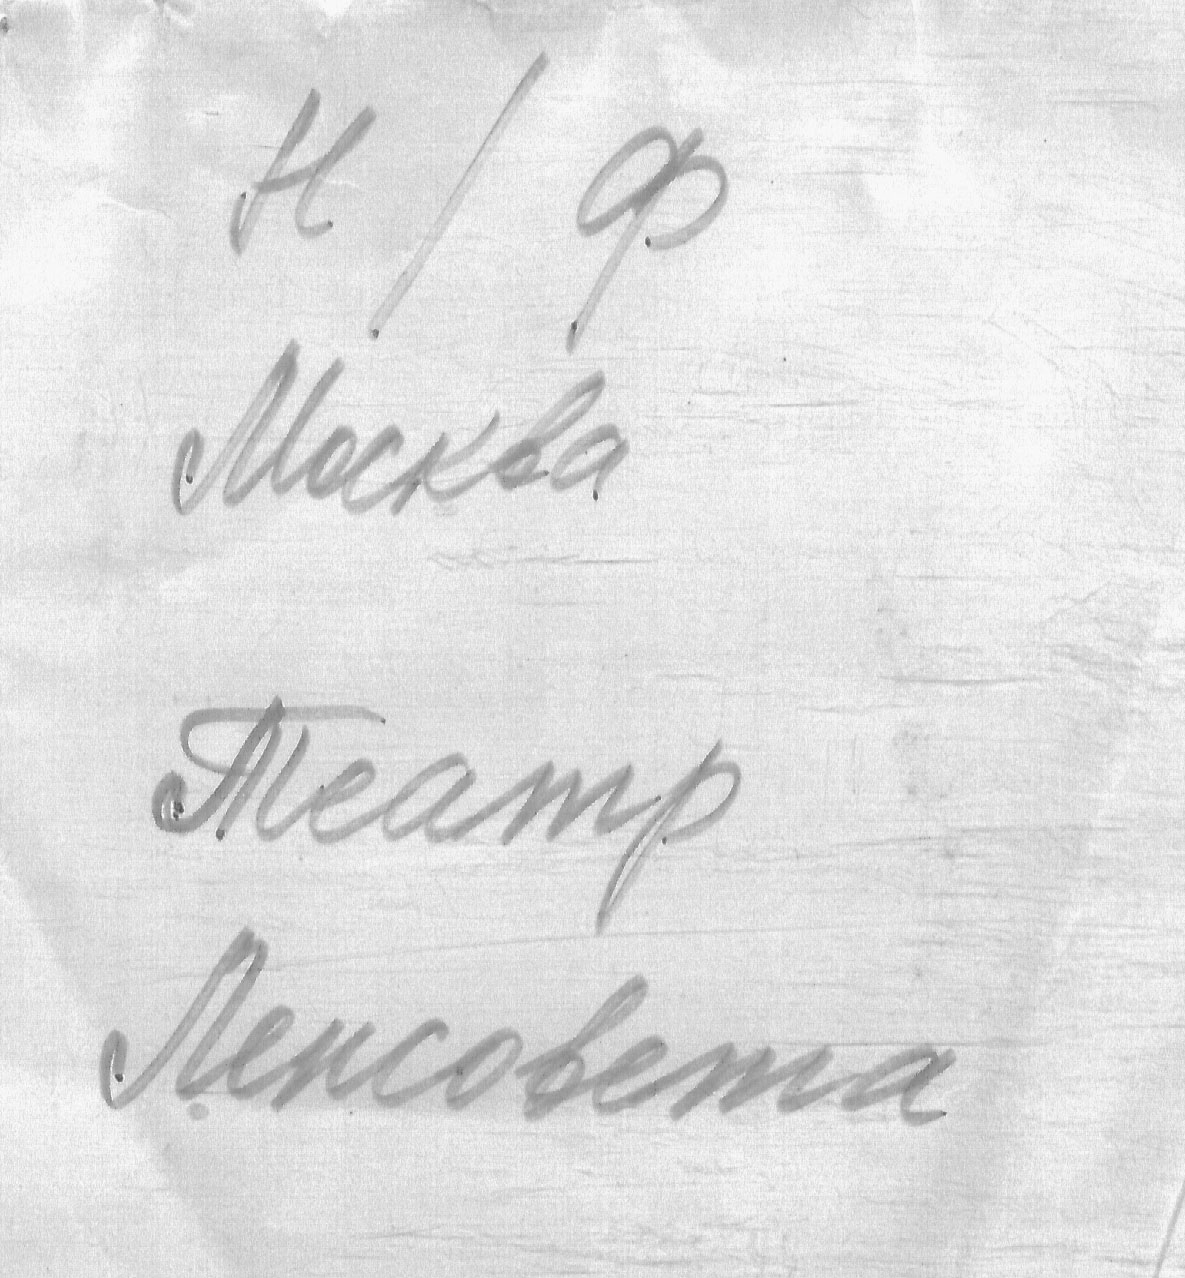 Н / Ф
Москва
Театр
Ленсовета